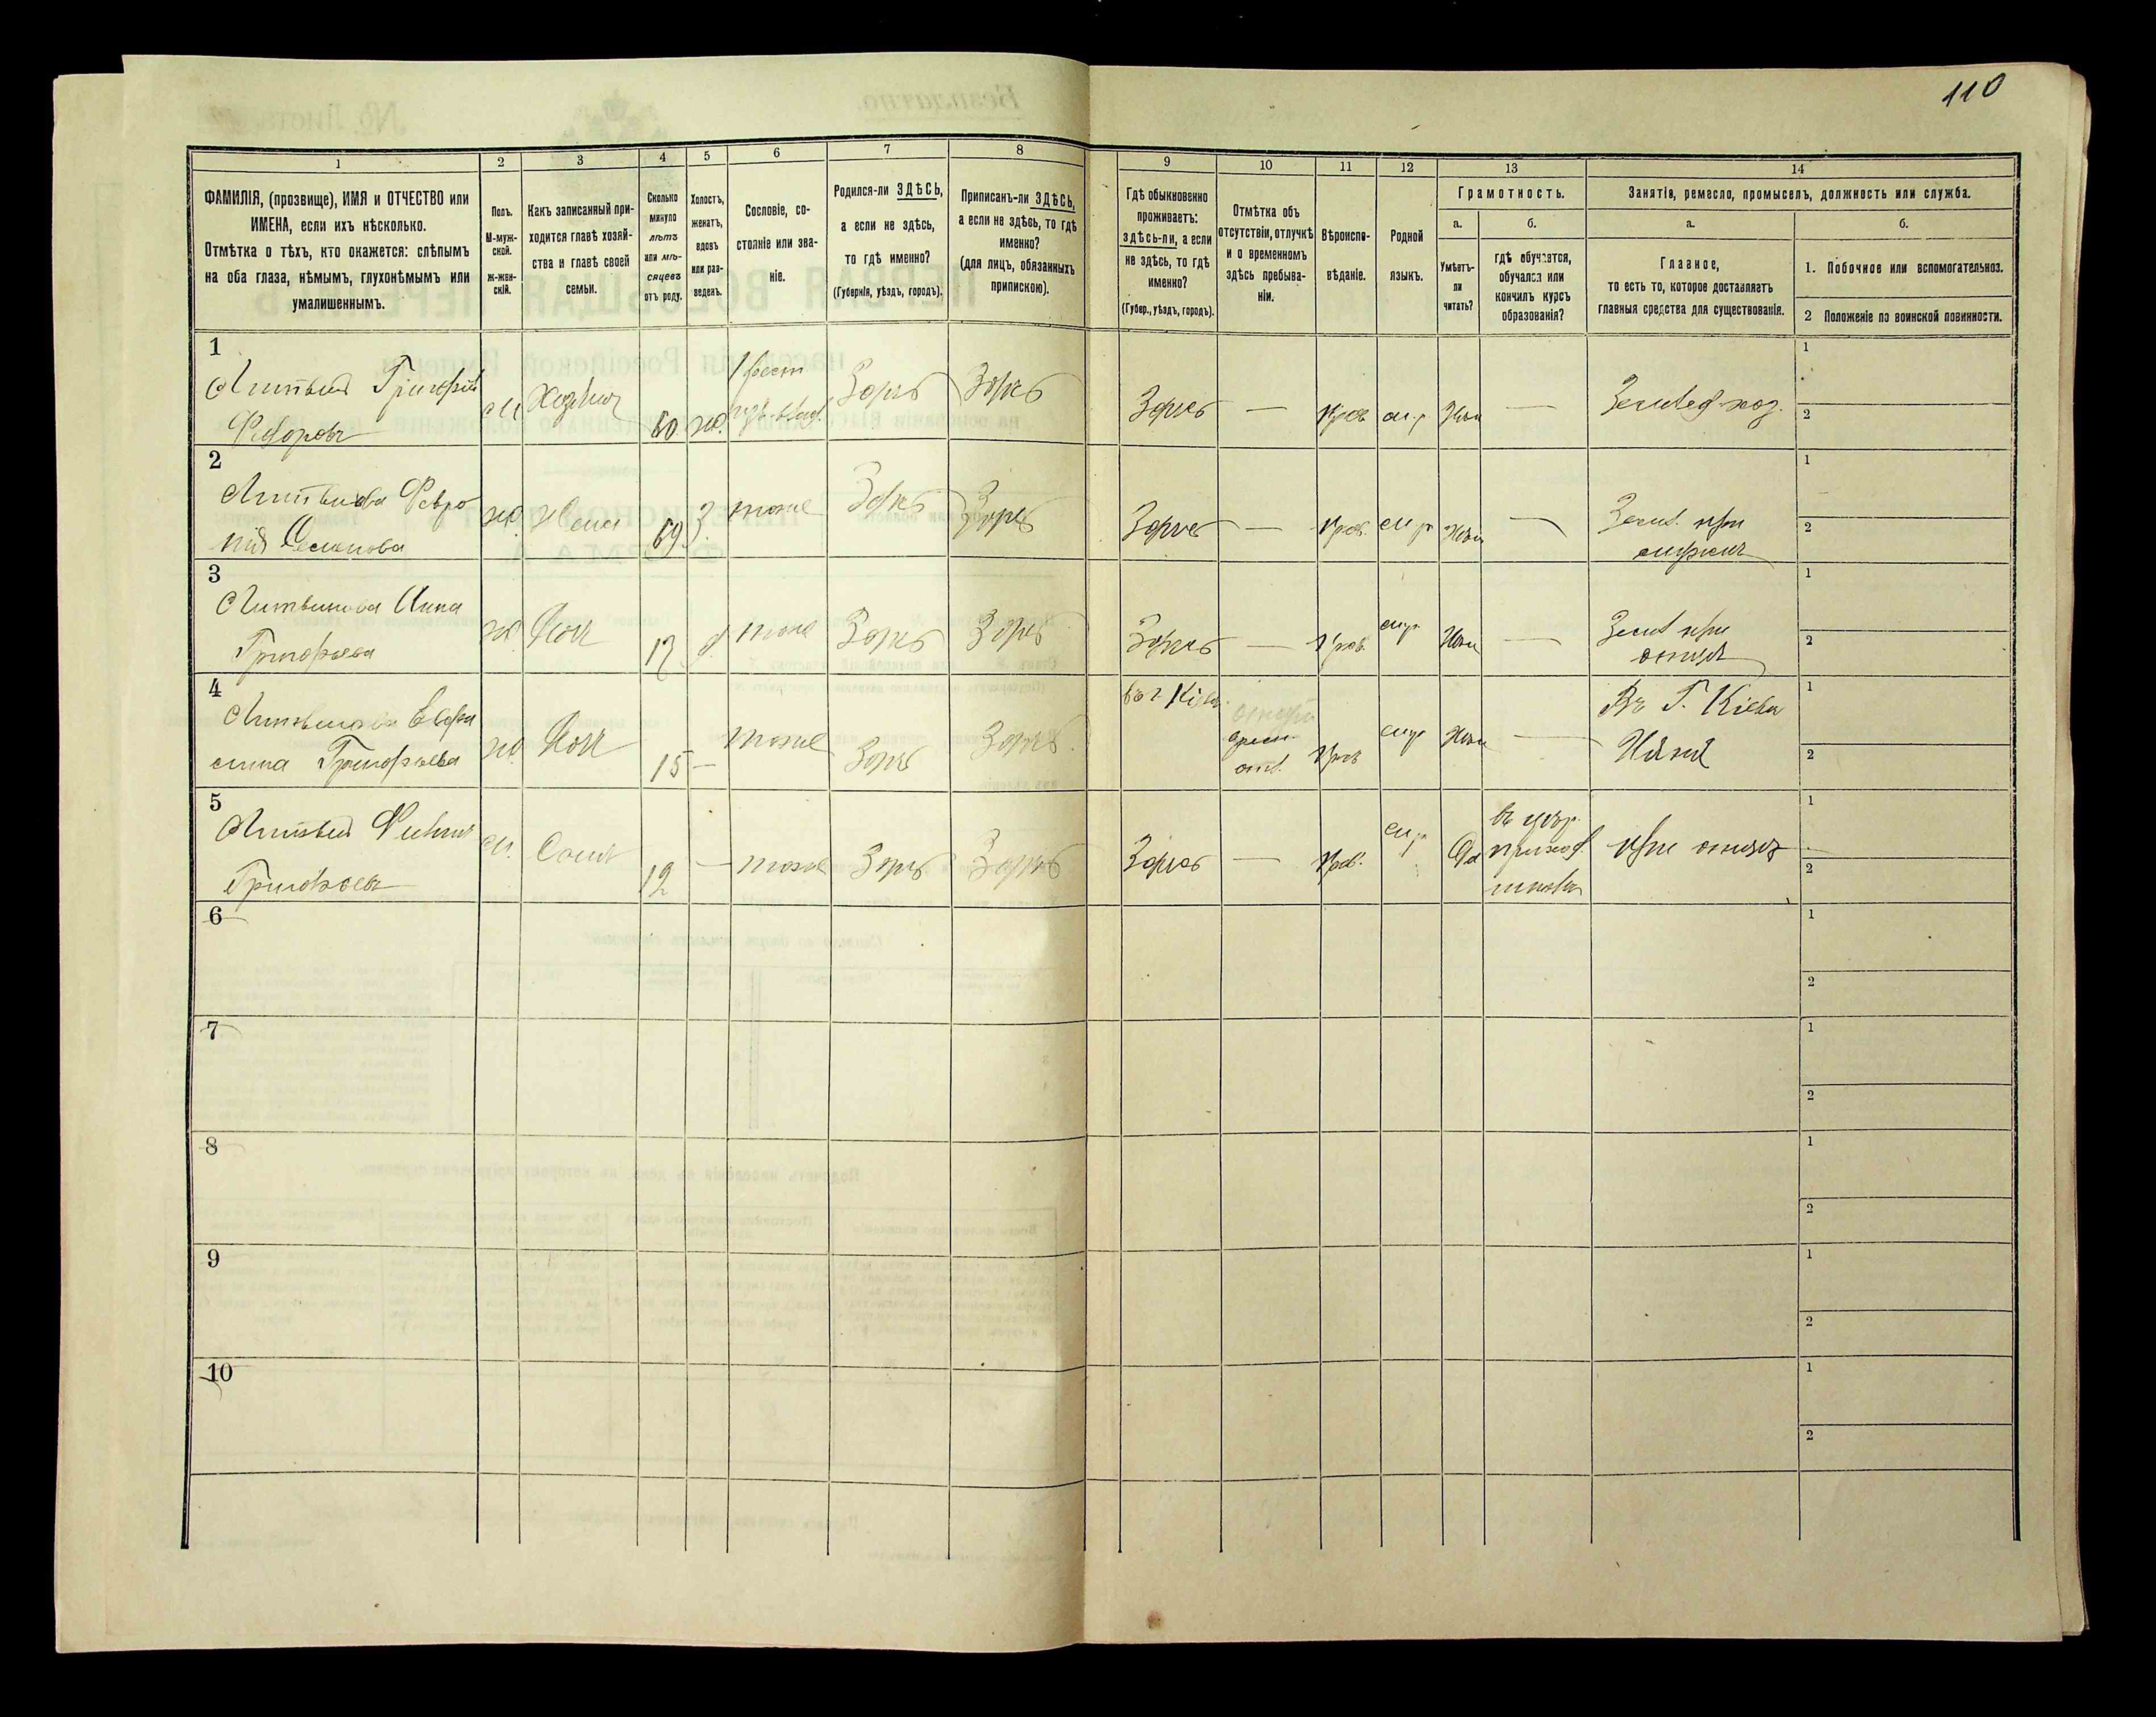 110
1
2
3
4
5
6
7
8
9
10
11
12
13
14
ФАМИЛІЯ, (прозвище), ИМЯ и ОТЧЕСТВО или
ИМЕНА, если ихъ нѣсколько.
Отмѣтка о тѣхъ, кто окажется: слѣпымъ
на оба глаза, нѣмымъ, глухонѣмымъ или
умалишеннымъ.
Полъ.
М-муж-
ской.
ж-жен-
скій.
Какъ записанный при-
ходится главѣ хозяй-
ства и главѣ своей
семьи.
Сколько
минуло
лѣтъ
или мѣ-
сяцевъ
отъ роду.
Холостъ,
женатъ,
вдовъ
или раз-
веденъ.
Сословіе, со-
стояніе или зва-
ніе.
Родился-ли ЗДѢСЬ,
а если не здѣсь,
то гдѣ именно?
(Губернія, уѣздъ, городъ).
Приписанъ-ли ЗДѢСЬ,
а если не здѣсь, то гдѣ
именно?
(для лицъ, обязанныхъ
припискою).
Гдѣ обыкновенно
проживаетъ:
здѣсь-ли, а если
не здѣсь, то гдѣ
именно?
(Губер., уѣздъ, городъ).
Отмѣтка объ
отсутствіи, отлучкѣ
и о временномъ
здѣсь пребыва-
ніи.
Вѣроиспо-
вѣданіе.
Родной
языкъ.
Грамотность.
а.
Умѣетъ-
ли
читать?
б.
гдѣ обучается,
обучался или
кончилъ курсъ
образованія?
Занятія, ремесло, промыселъ, должность или служба.
а.
Главное,
то есть то, которое доставляетъ
главныя средства для существованія.
б.
1. Побочное или вспомогательное.
2 Положеніе по воинской повинности.
1
Литвин Григорій
Федоровъ
М
Хозяин
60
ж.
Крест
Здрсь
Здрсь
Здрсь
—
Прав
м.р
Нѣт
—
Землед. хоз.
1
2
2
Литвинова Февро
нія Семенова
ж
Жена
59
З.
тоже
Здрсь
—
Прав.
м р
—
Земл. при
мужем
1
2
3
Литвинова Анна
Григорьева
ж
Доч
17
д.
тоже
—
Прав.
м.р
—
Земл при
отцѣ
1
2
4
Григорьева
ж
Доч
15 —
тоже
въ г. Кіевѣ
врем.
отл.
Прав
м.р
—
Въ Г. Кіевѣ
Няня
1
2
5
Григорьевъ
м.
Сын
12
—
тоже
—
Прав.
м.р
Да
въ церк.
приход
школѣ
при отцѣ
1
2
6
1
2
7
1
2
8
1
2
9
1
2
10
1
2